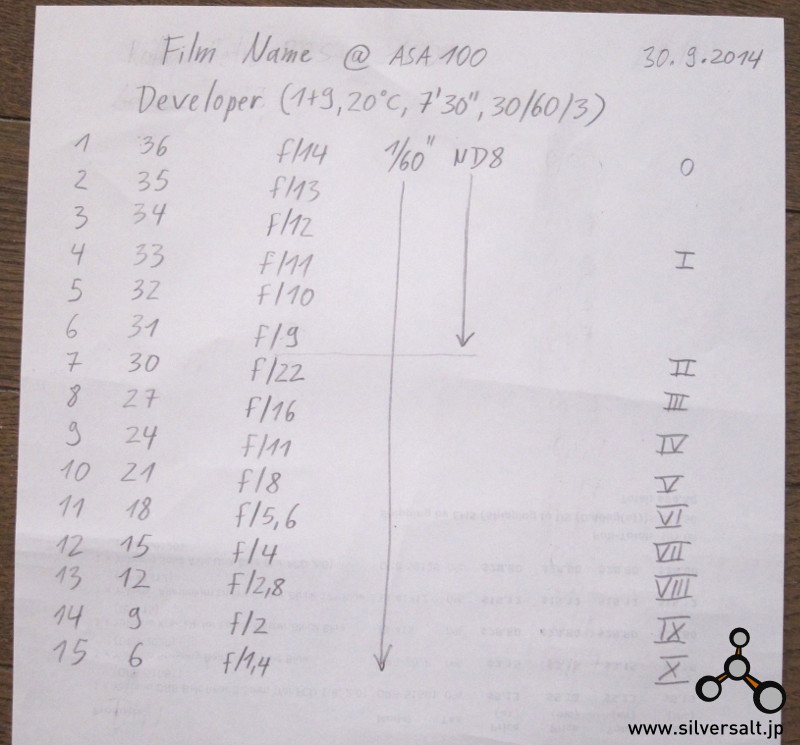 Film Name @ ASA 100 30.9.2014
Developer (1+9, 20°C, 7'30", 30/60/3)
1 36 f/14 1/60" ND8 0
2 35 f/13
3 34 f/12
4 33 f/11 I
5 32 f/10
6 31 f/9
7 30 f/22 II
8 27 f/16 III
9 24 f/11 IV
10 21 f/8 V
11 18 f/5,6 VI
12 15 f/4 VII
13 12 f/2,8 VIII
14 9 f/2 IX
15 6 f/1,4 X
www.silversalt.jp